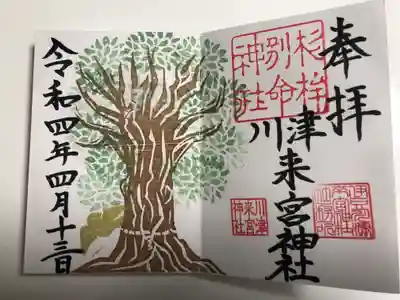 奉拝
杉桙
別命
神社
川津来宮神社
川津
来宮
神社
令和四年四月十三日